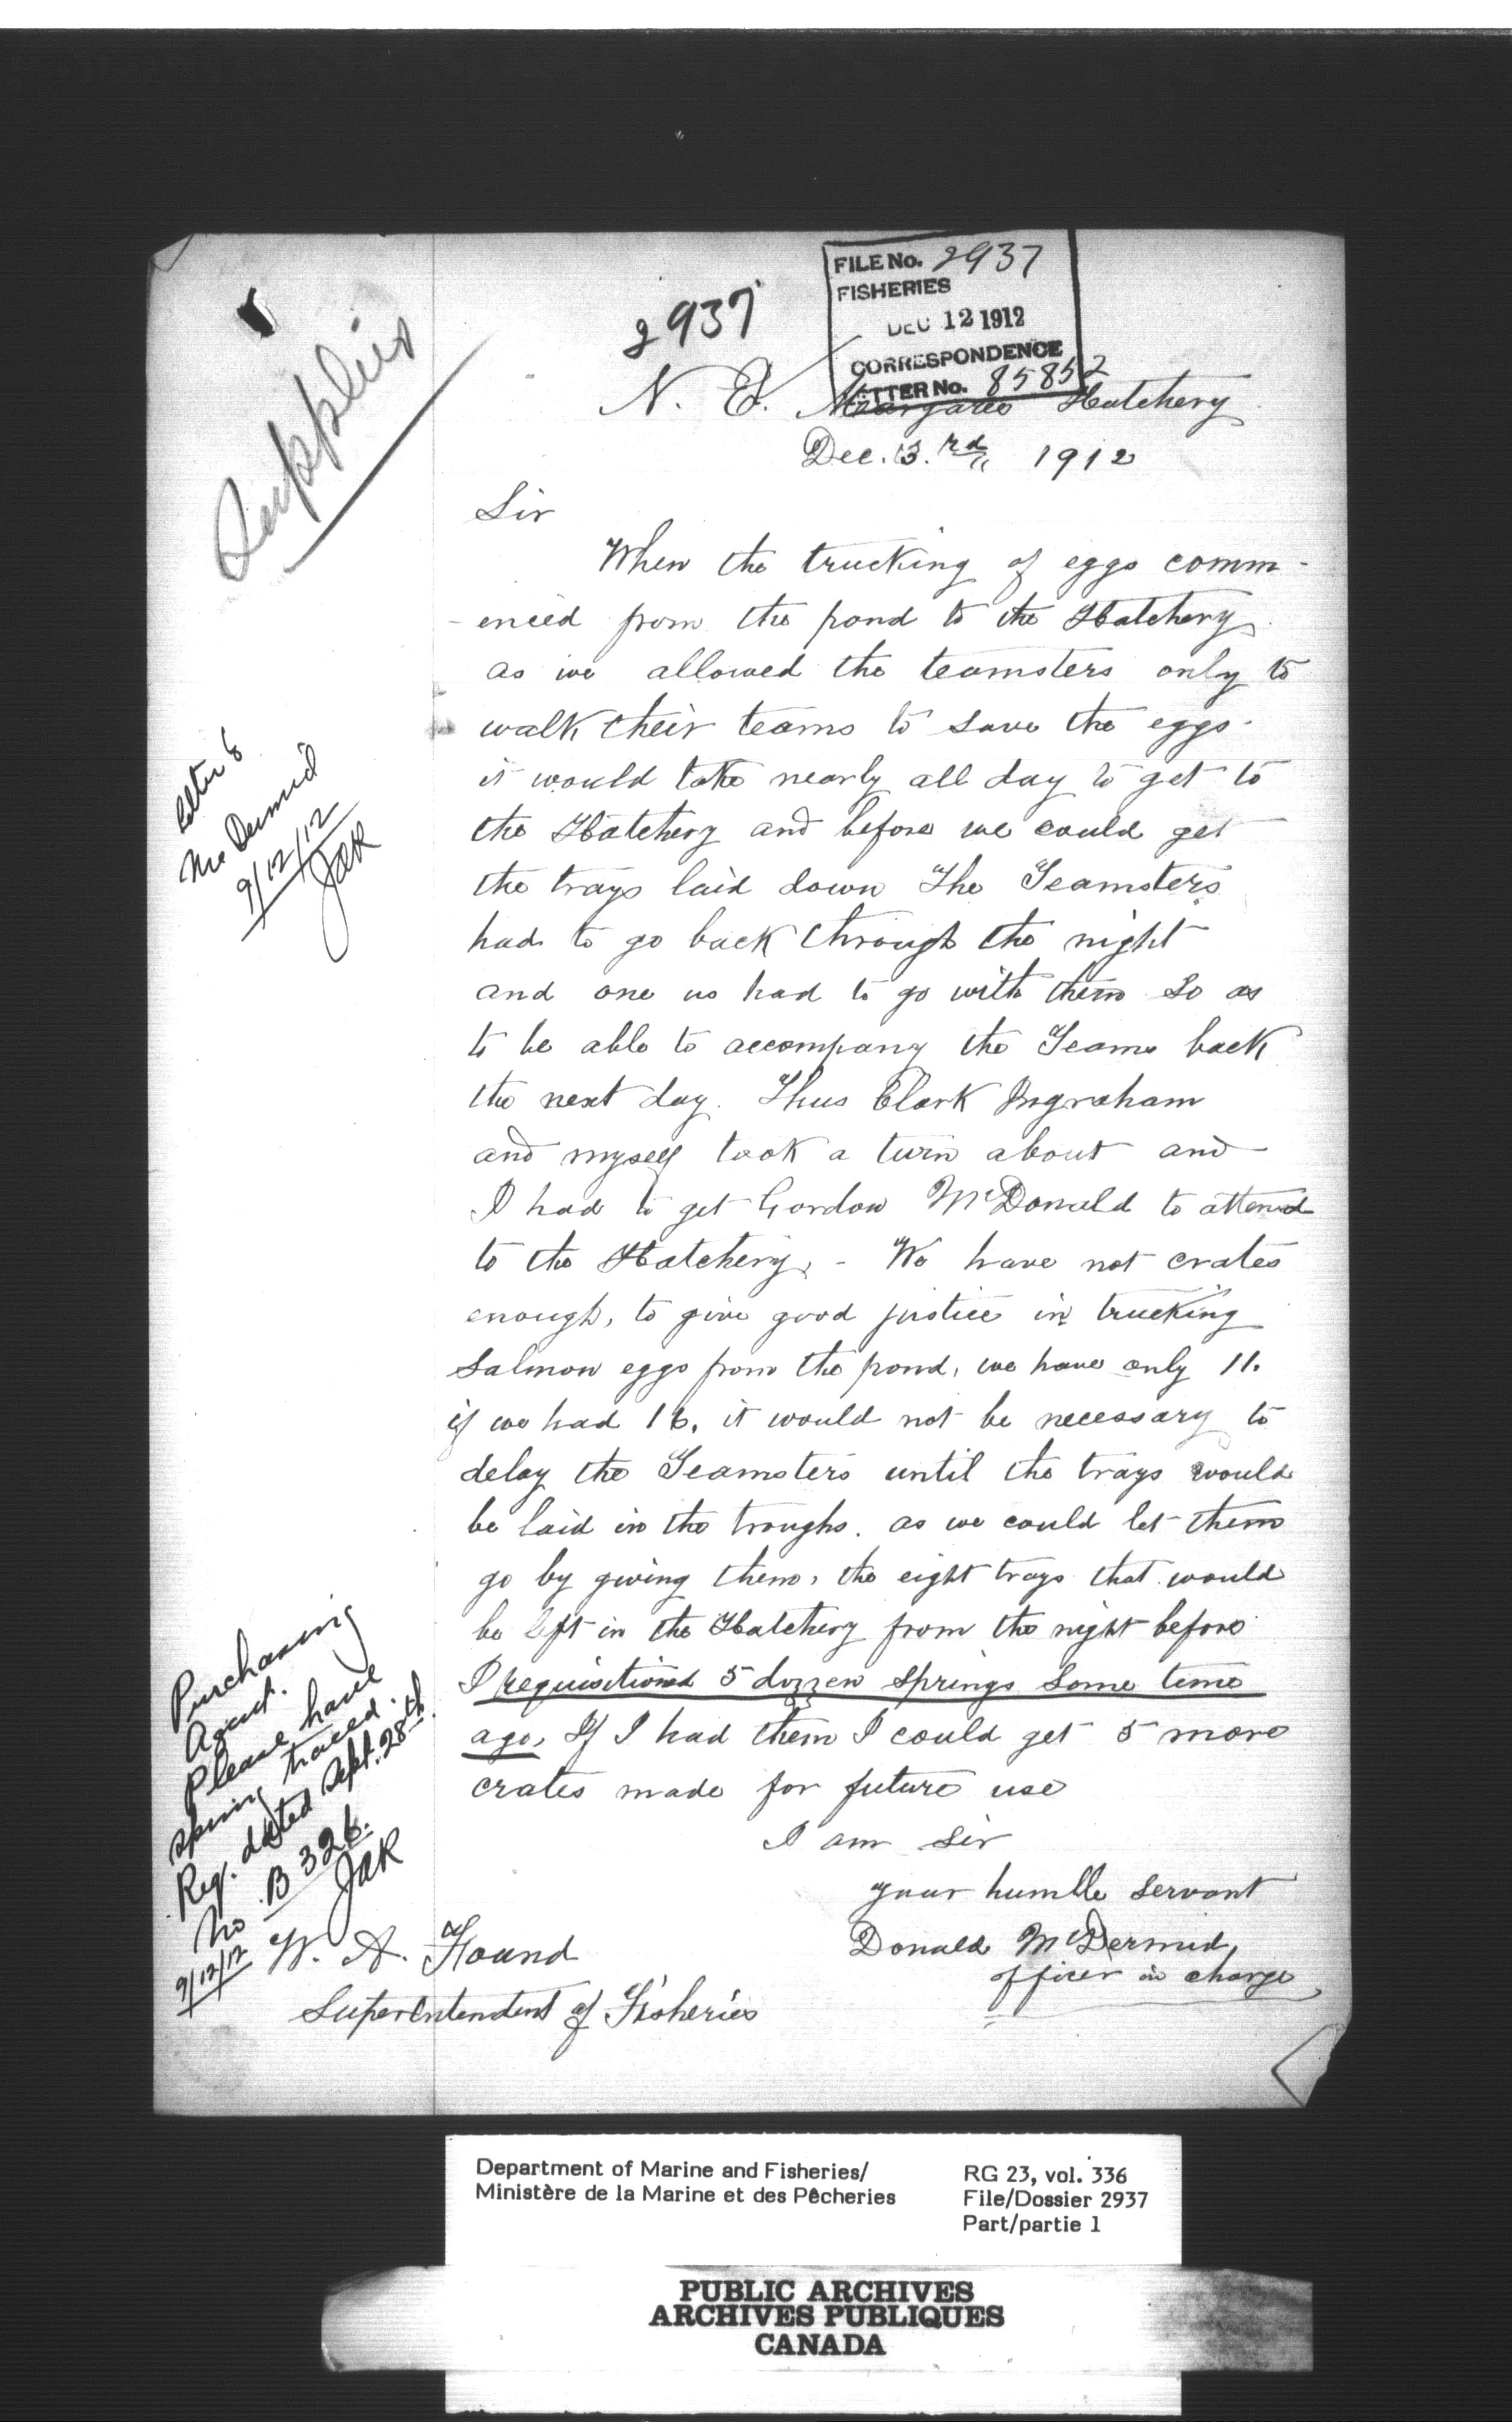 FILE No. 2937
FISHERIES
DEC 12 1912
CORRESPONDENCE
LETTER No. 85852
2937
Supplies
N. E. Margaree Hatchery
Dec. 3.rd 1912
Sir
When the trucking of eggs comm-
-enced from the pond to the Hatchery
as we allowed the teamsters only to
walk their teams to save the eggs.
it would take nearly all day to get to
the Hatchery and before we could get
the trays laid down The Teamsters
had to go back through the night
and one us had to go with them so as
to be able to accompany the Teams back
the next day. Thus Clark Ingraham
and myself took a turn about and
I had to get Gordon McDonald to attend
to the Hatchery, - We have not crates
enough, to give good justice in trucking
Salmon eggs from the pond, we have only 11.
if we had 16, it would not be necessary to
delay the Teamsters until the trays would
be laid in the troughs. as we could let them
go by giving them, the eight trays that would
be left in the Hatchery from the night before
I requisitioned 5 dozzen springs some time
ago, If I had them I could get 5 more
crates made for future use
I am Sir
your humble servant
Donald McDermid,
officer in charge
W. A. Found
Superintendent of Fisheries
Letter to
McDermid
9/12/12
JAR
Purchasing
Agent.
Please have
spring traced
Req. dated Sept. 28th
No B 326.
JAR
9/12/12
Department of Marine and Fisheries/
Ministère de la Marine et des Pêcheries
RG 23, vol. 336
File/Dossier 2937
Part/partie 1
PUBLIC ARCHIVES
ARCHIVES PUBLIQUES
CANADA